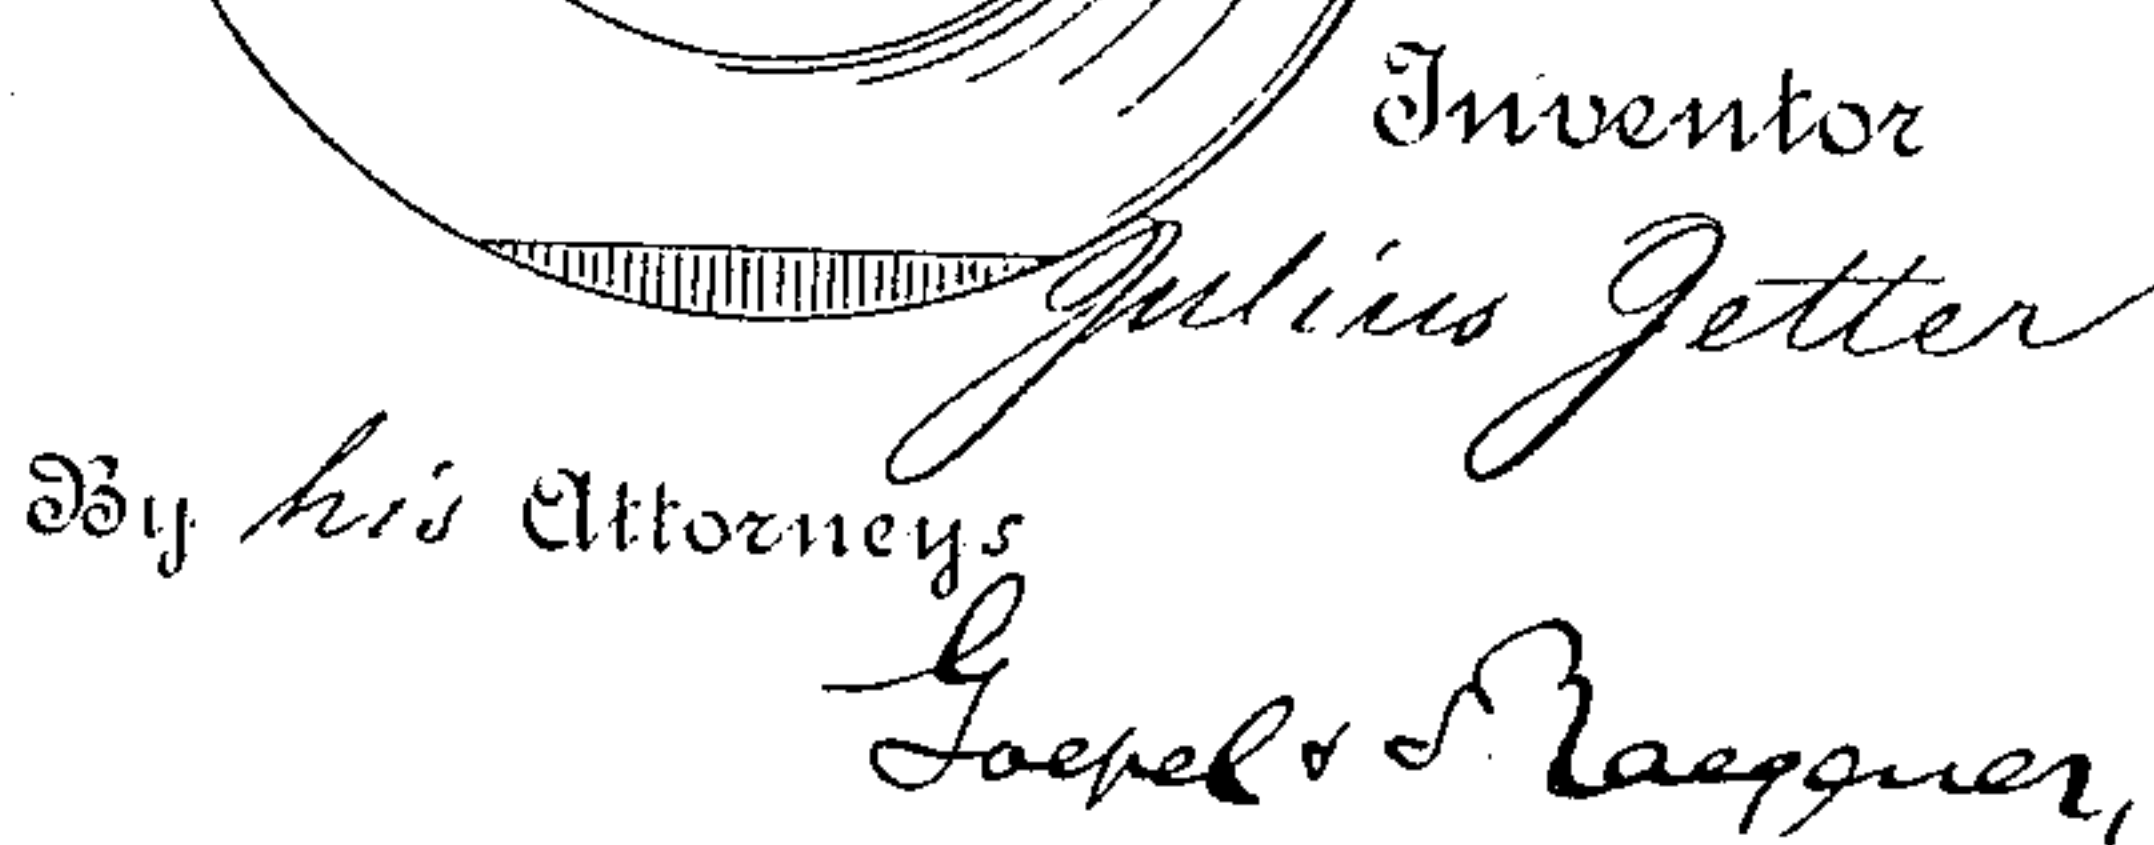 Inventor
Julius Jetter
By his Attorneys
Goepel & Raegener,